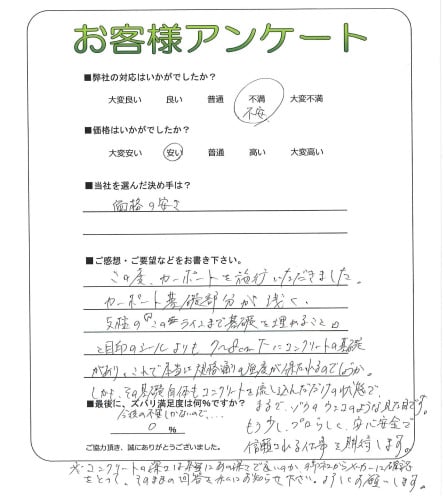 お客様アンケート
■弊社の対応はいかがでしたか?
大変良い 良い 普通 不満 大変不満
不安
■価格はいかがでしたか?
大変安い 安い 普通 高い 大変高い
■当社を選んだ決め手は?
価格の安さ
■ご感想・ご要望などをお書き下さい。
この度、カーポートを施行いただきました。
カーポート基礎部分が浅く、
支柱の"このラインまで基礎を埋めること"
と目印のシールよりも7~8cm下にコンクリートの基礎
があり、これで本当に規格通りの強度が保たれるのでしょうか。
しかも、その基礎自体もコンクリートを流し込んだだけの状態で、
まるで、ゾウのウンコのような見た目です。
■最後に、ズバリ満足度は何%ですか?
今後の不安しかないので....
0 %
もう少し、プロらしく、安心安全で
信頼される仕事を期待します。
ご協力頂き、誠にありがとうございました。
※コンクリートの深さは本当にあの深さで良いのか
メーカーに確認
をとって、その回答を私にお知らせ下さい。よろしくお願いします。